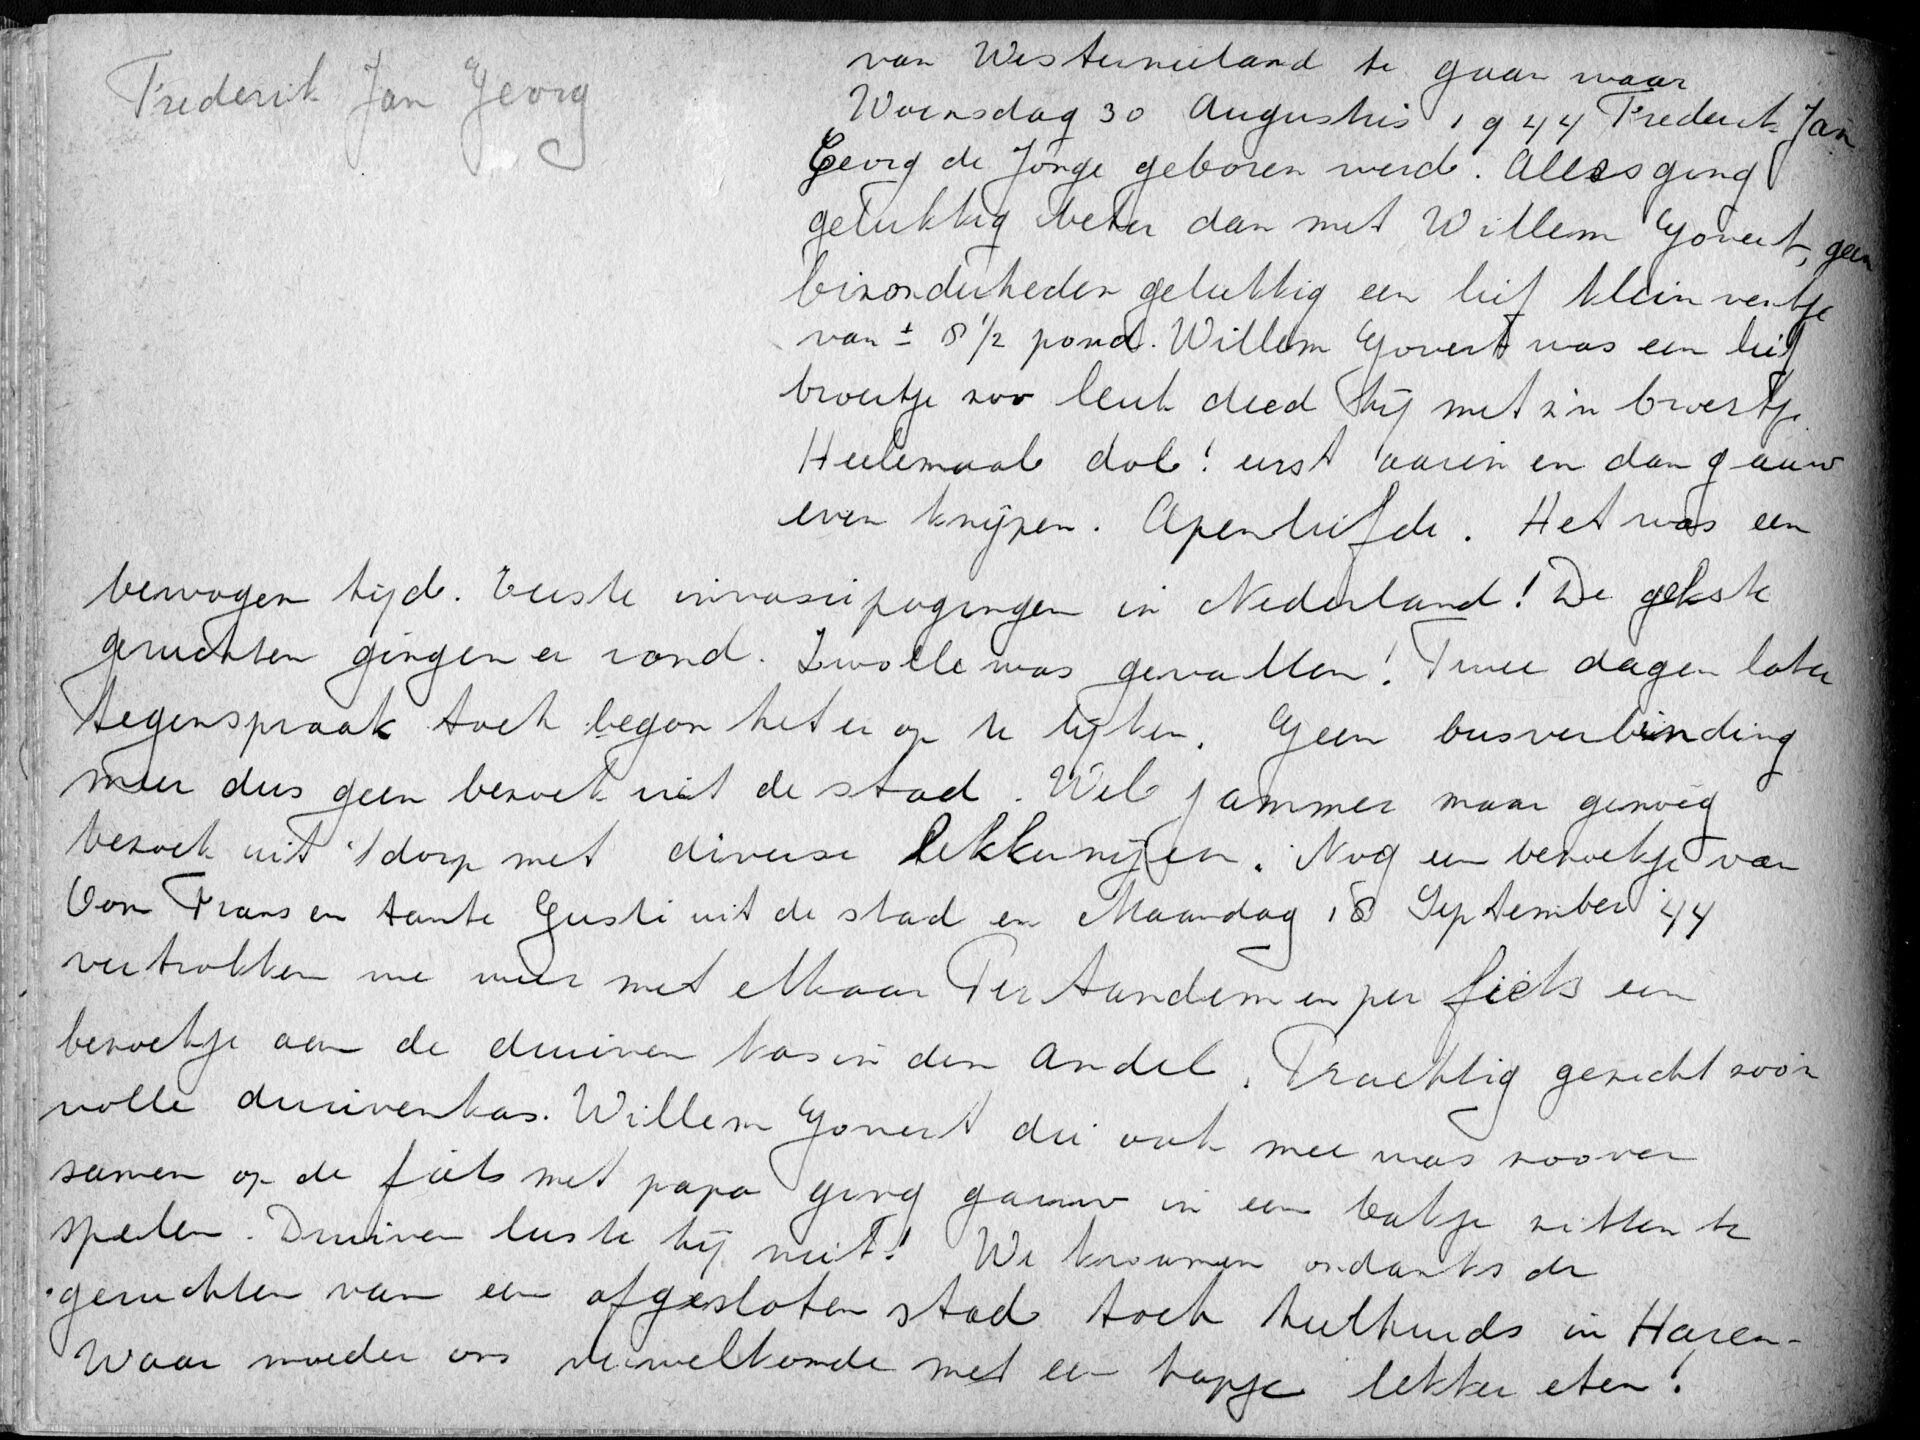 Frederik Jan Georg
van Westernieland te gaan waar
Woensdag 30 Augustus 1944 Frederik Jan
Georg de Jonge geboren werd. Alles ging
gelukkig beter dan met Willem Govert, geen
bizonderheden gelukkig een lief klein ventje
van ± 8 1/2 pond. Willem Govert was een lief
broertje zoo leuk deed hij met z'n broertje
Heelemaal dol! eerst aaien en dan gauw
even knijpen. Apenliefde. Het was een
bewogen tijd. Eerste invasiepogingen in Nederland! De gekste
geruchten gingen er rond. Zwolle was gevallen! Twee dagen later
tegenspraak toch begon het er op te lijken. Geen busverbinding
meer dus geen bezoek uit de stad. Wel jammer maar genoeg
bezoek uit 't dorp met diverse lekkernijen. Nog een bezoekje van
Oom Frans en tante Gusti uit de stad en Maandag 18 September '44
vertrokken we weer met elkaar Per tandem en per fiets een
bezoekje aan de druiven kas in den Andel. Prachtig gezicht zoo'n
volle druivenkas. Willem Govert die ook mee was voorop
samen op de fiets met papa ging gauw in een bakje zitten te
spelen. Druiven luste hij niet! We kwamen ondanks de
geruchten van een afgesloten stad toch heelhuids in Haren-
Waar moeder ons verwelkomde met een hapje lekker eten!